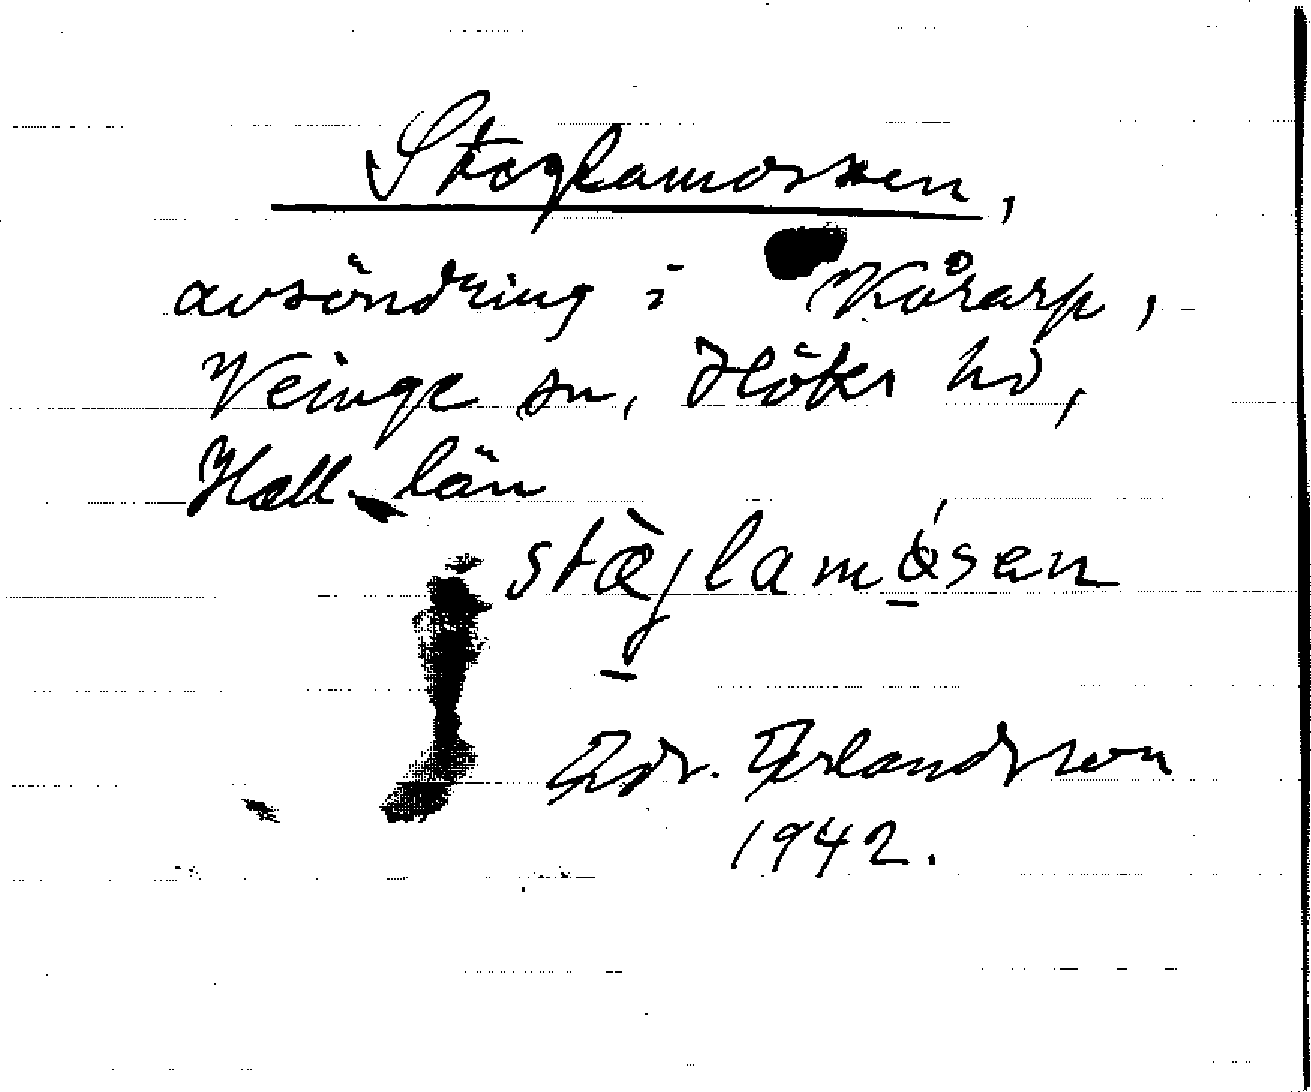 Steglamossen,
avsöndring i Kårarp,
Veinge sn, Höks hd,
Hall. län
stæ̀glamósen
Edv. Erlandsson
1942.